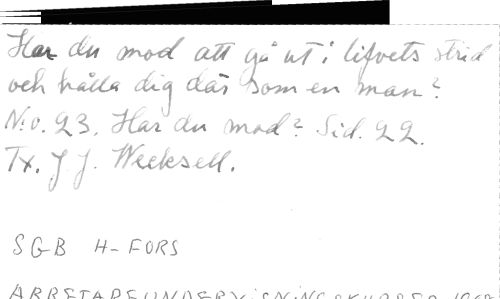 Har du mod att gå ut i lifvets strid
och hålla dig där som en man?
N:o. 23. Har du mod? Sid. 22.
Tx. J J. Wecksell.
SGB H-FORS